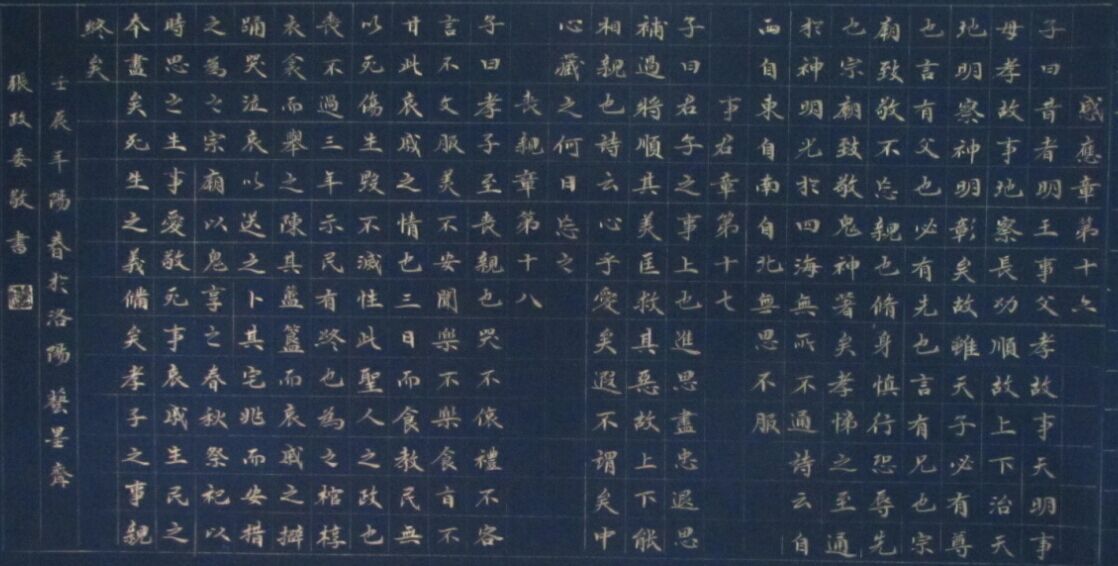 感應章第十六
子曰昔者明王事父孝故事天明事
母孝故事地察長幼順故上下治天
地明察神明彰矣故雖天子必有尊
也言有父也必有先也言有兄也宗
廟致敬不忘親也脩身慎行恐辱先
也宗廟致敬鬼神著矣孝悌之至通
於神明光於四海無所不通詩云自
西自東自南自北無思不服
事君章第十七
子曰君子之事上也進思盡忠退思
補過將順其美匡救其惡故上下能
相親也詩云心乎愛矣遐不謂矣中
心藏之何日忘之
喪親章第十八
子曰孝子至喪親也哭不偯禮不容
言不文服美不安聞樂不樂食旨不
甘此哀戚之情也三日而食教民無
以死傷生毀不滅性此聖人之政也
喪不過三年示民有終也為之棺椁
衣衾而舉之陳其簠簋而哀戚之擗
踊哭泣哀以送之卜其宅兆而安措
之為之宗廟以鬼享之春秋祭祀以
時思之生事愛敬死事哀戚生民之
本盡矣死生之義備矣孝子之事親
終矣
壬辰年陽春於洛陽藝墨齋
張政委敬書